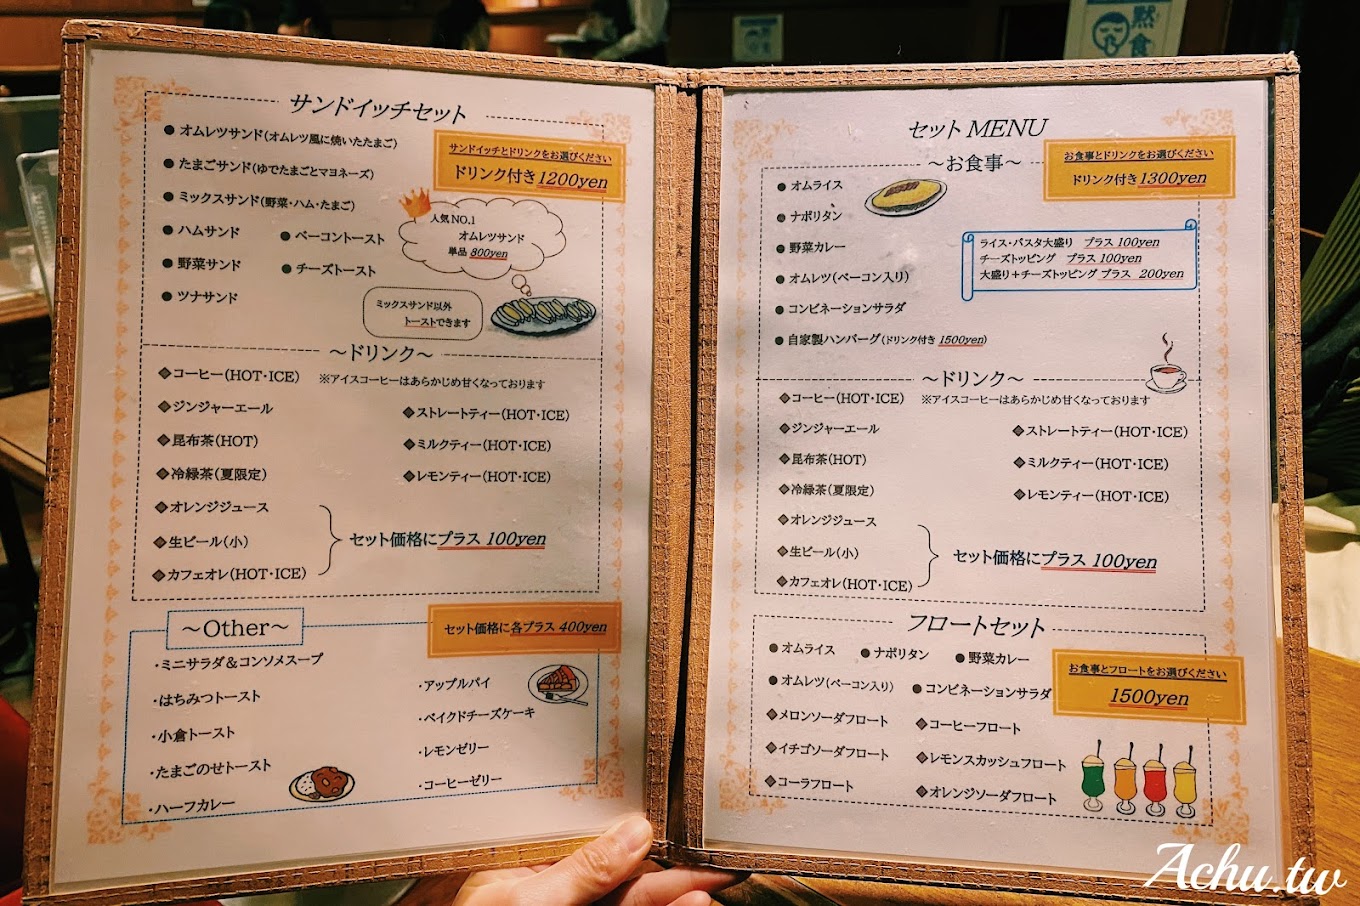 黙食
サンドイッチセット
● オムレツサンド(オムレツ風に焼いたたまご)
● たまごサンド(ゆでたまごとマヨネーズ)
● ミックスサンド(野菜・ハム・たまご)
● ハムサンド
● ベーコントースト
● 野菜サンド
● チーズトースト
● ツナサンド
サンドイッチとドリンクをお選びください
ドリンク付き1200yen
人気NO.1
オムレツサンド
単品 800yen
ミックスサンド以外
トーストできます
～ドリンク～
◆コーヒー(HOT・ICE) ※アイスコーヒーはあらかじめ甘くなっております
◆ジンジャーエール
◆昆布茶(HOT)
◆冷緑茶(夏限定)
◆オレンジジュース
◆生ビール(小)
◆カフェオレ(HOT・ICE)
◆ストレートティー(HOT・ICE)
◆ミルクティー(HOT・ICE)
◆レモンティー(HOT・ICE)
セット価格にプラス 100yen
～Other～
セット価格に各プラス 400yen
・ミニサラダ＆コンソメスープ
・はちみつトースト
・小倉トースト
・たまごのせトースト
・ハーフカレー
・アップルパイ
・ベイクドチーズケーキ
・レモンゼリー
・コーヒーゼリー
セットMENU
～お食事～
お食事とドリンクをお選びください
ドリンク付き1300yen
● オムライス
● ナポリタン
● 野菜カレー
● オムレツ(ベーコン入り)
● コンビネーションサラダ
● 自家製ハンバーグ(ドリンク付き 1500yen)
ライス・パスタ大盛り プラス 100yen
チーズトッピング プラス 100yen
大盛り＋チーズトッピング プラス 200yen
～ドリンク～
◆コーヒー(HOT・ICE) ※アイスコーヒーはあらかじめ甘くなっております
◆ジンジャーエール
◆昆布茶(HOT)
◆冷緑茶(夏限定)
◆オレンジジュース
◆生ビール(小)
◆カフェオレ(HOT・ICE)
◆ストレートティー(HOT・ICE)
◆ミルクティー(HOT・ICE)
◆レモンティー(HOT・ICE)
セット価格にプラス 100yen
フロートセット
● オムライス ● ナポリタン ● 野菜カレー
● オムレツ(ベーコン入り) ● コンビネーションサラダ
お食事とフロートをお選びください
1500yen
◆メロンソーダフロート
◆イチゴソーダフロート
◆コーラフロート
◆コーヒーフロート
◆レモンスカッシュフロート
◆オレンジソーダフロート
Achu.tw